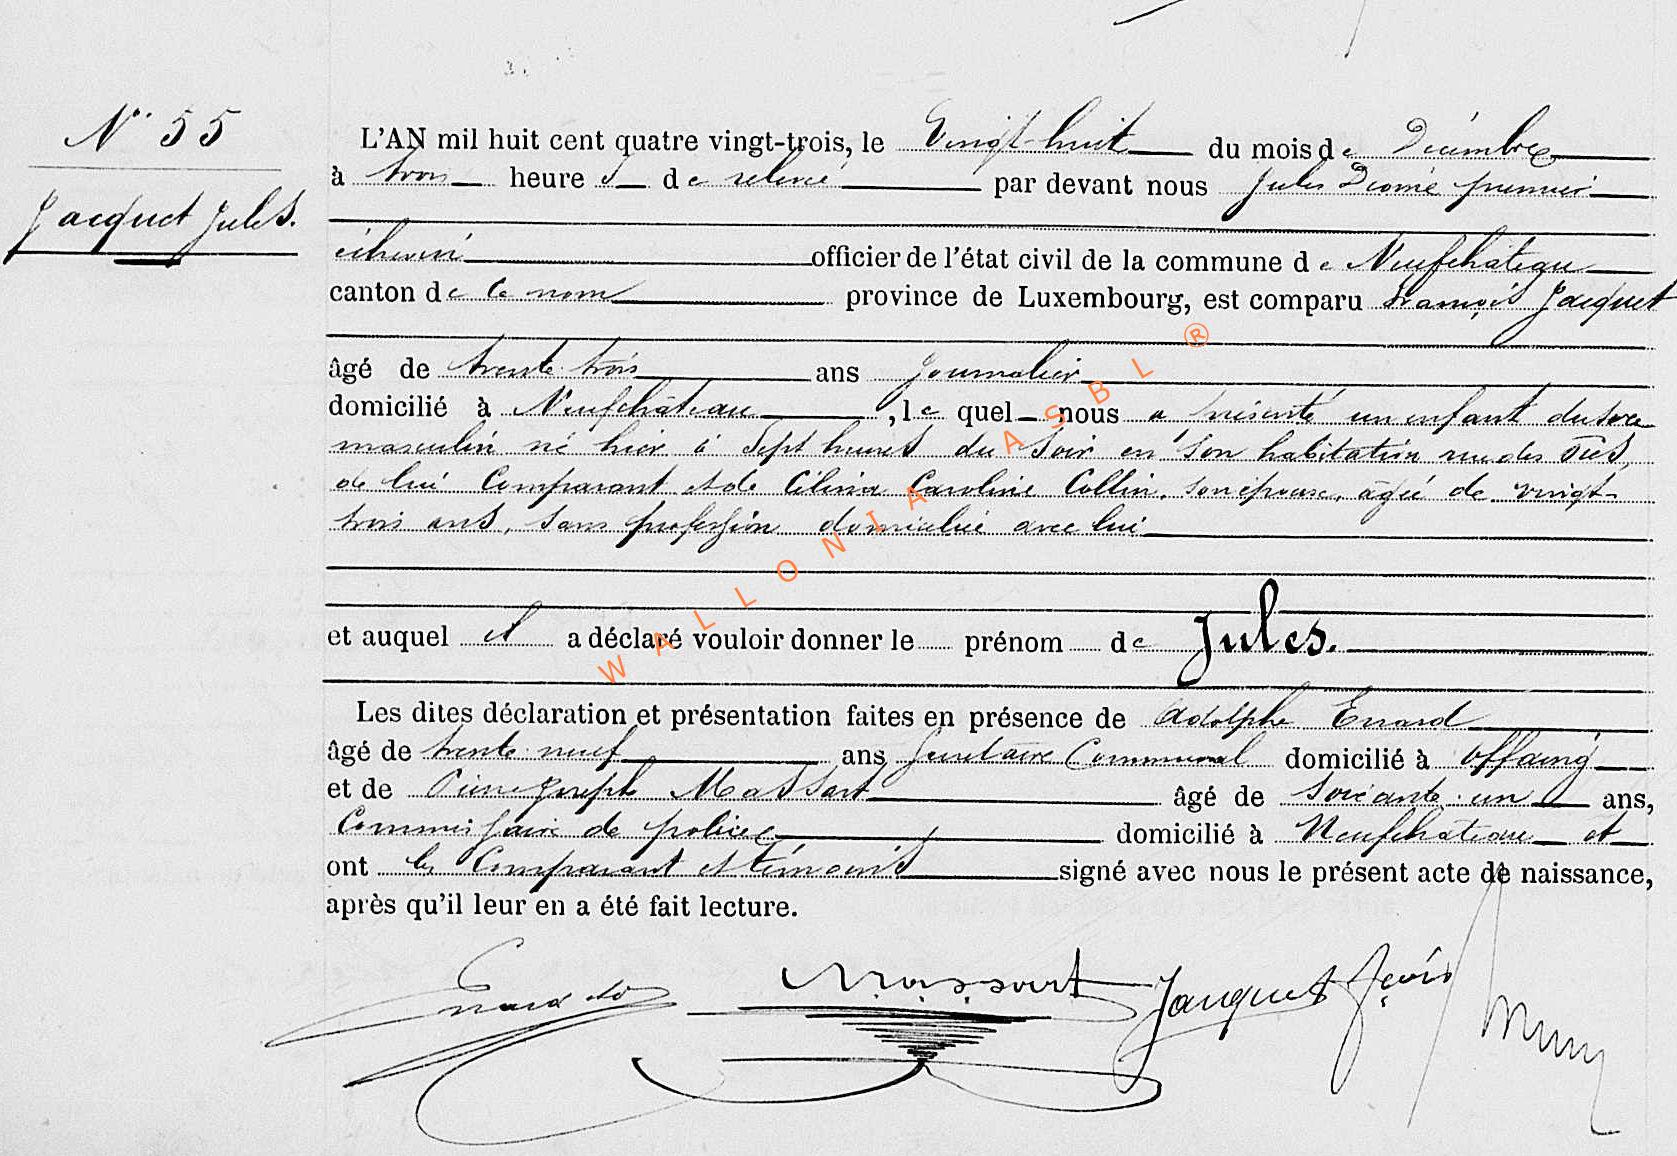 N° 55
Jacquet Jules.
L'AN mil huit cent quatre vingt-trois, le Vingt-huit du mois de Décembre
à trois heures de relevé par devant nous Jules Dromé premier
échevin officier de l'état civil de la commune de Neufchâteau
canton de ce nom province de Luxembourg, est comparu François Jacquet
âgé de trente trois ans Journalier
domicilié à Neufchâteau, lequel nous a présenté un enfant du sexe
masculin né hier à Sept heures du Soir en son habitation rue des
de lui Comparant et de Célina Caroline Collin, son épouse, âgée de vingt-
trois ans, sans profession domiciliée avec lui
et auquel il a déclaré vouloir donner le prénom de Jules.
Les dites déclaration et présentation faites en présence de Adolphe Evrard
âgé de trente-neuf ans Secrétaire Communal domicilié à Offaing
et de Pierre Joseph Massart âgé de soixante-un ans,
Commissaire de police domicilié à Neufchâteau et
ont les Comparant et témoins signé avec nous le présent acte de naissance,
après qu'il leur en a été fait lecture.
Massart Jacquet fçois
WALLONIA ASBL ®